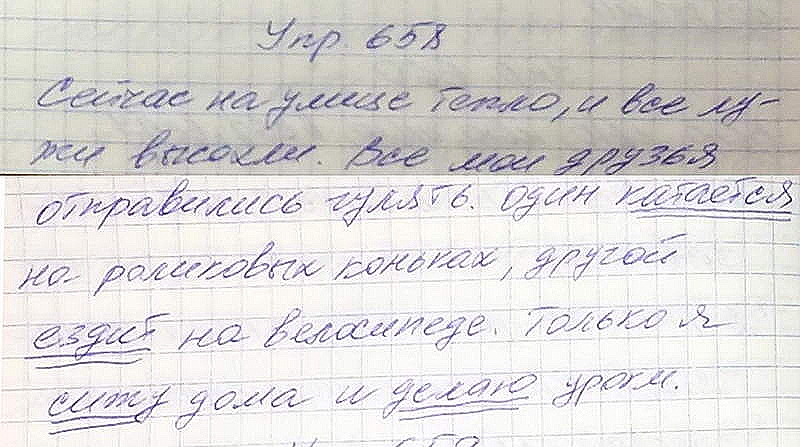 Упр. 658
Сейчас на улице тепло, и все лу-
жи высохли. Все мои друзья
отправились гулять. Один катается
на роликовых коньках, другой
ездит на велосипеде. Только я
сижу дома и делаю уроки.